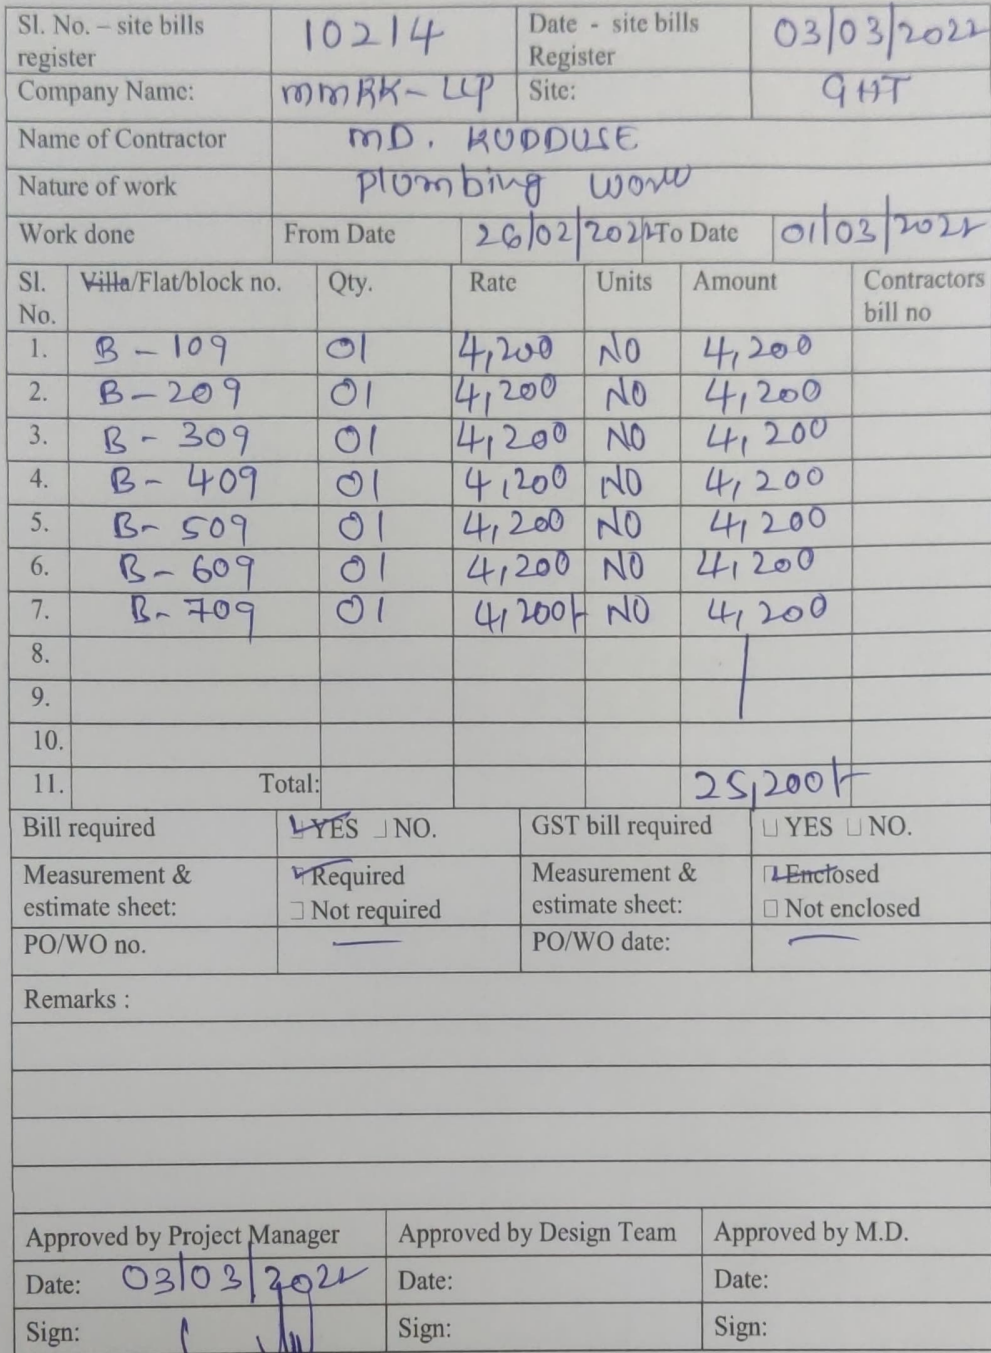 Sl. No. – site bills register 10214 Date - site bills Register 03/03/2022
Company Name: MMRK-LLP Site: GHT
Name of Contractor MD. KUDDUSE
Nature of work Plumbing work
Work done From Date 26/02/2022 To Date 01/03/2022
Sl. No. Villa/Flat/block no. Qty. Rate Units Amount Contractors bill no
1. B - 109 01 4,200 NO 4,200
2. B - 209 01 4,200 NO 4,200
3. B - 309 01 4,200 NO 4,200
4. B - 409 01 4,200 NO 4,200
5. B - 509 01 4,200 NO 4,200
6. B - 609 01 4,200 NO 4,200
7. B - 709 01 4,200/- NO 4,200
8.
9.
10.
11. Total: 25,200/-
Bill required YES NO. GST bill required YES NO.
Measurement & estimate sheet: Required Not required Measurement & estimate sheet: Enclosed Not enclosed
PO/WO no. — PO/WO date: —
Remarks :
Approved by Project Manager Approved by Design Team Approved by M.D.
Date: 03/03/2022 Date: Date:
Sign: Sign: Sign: